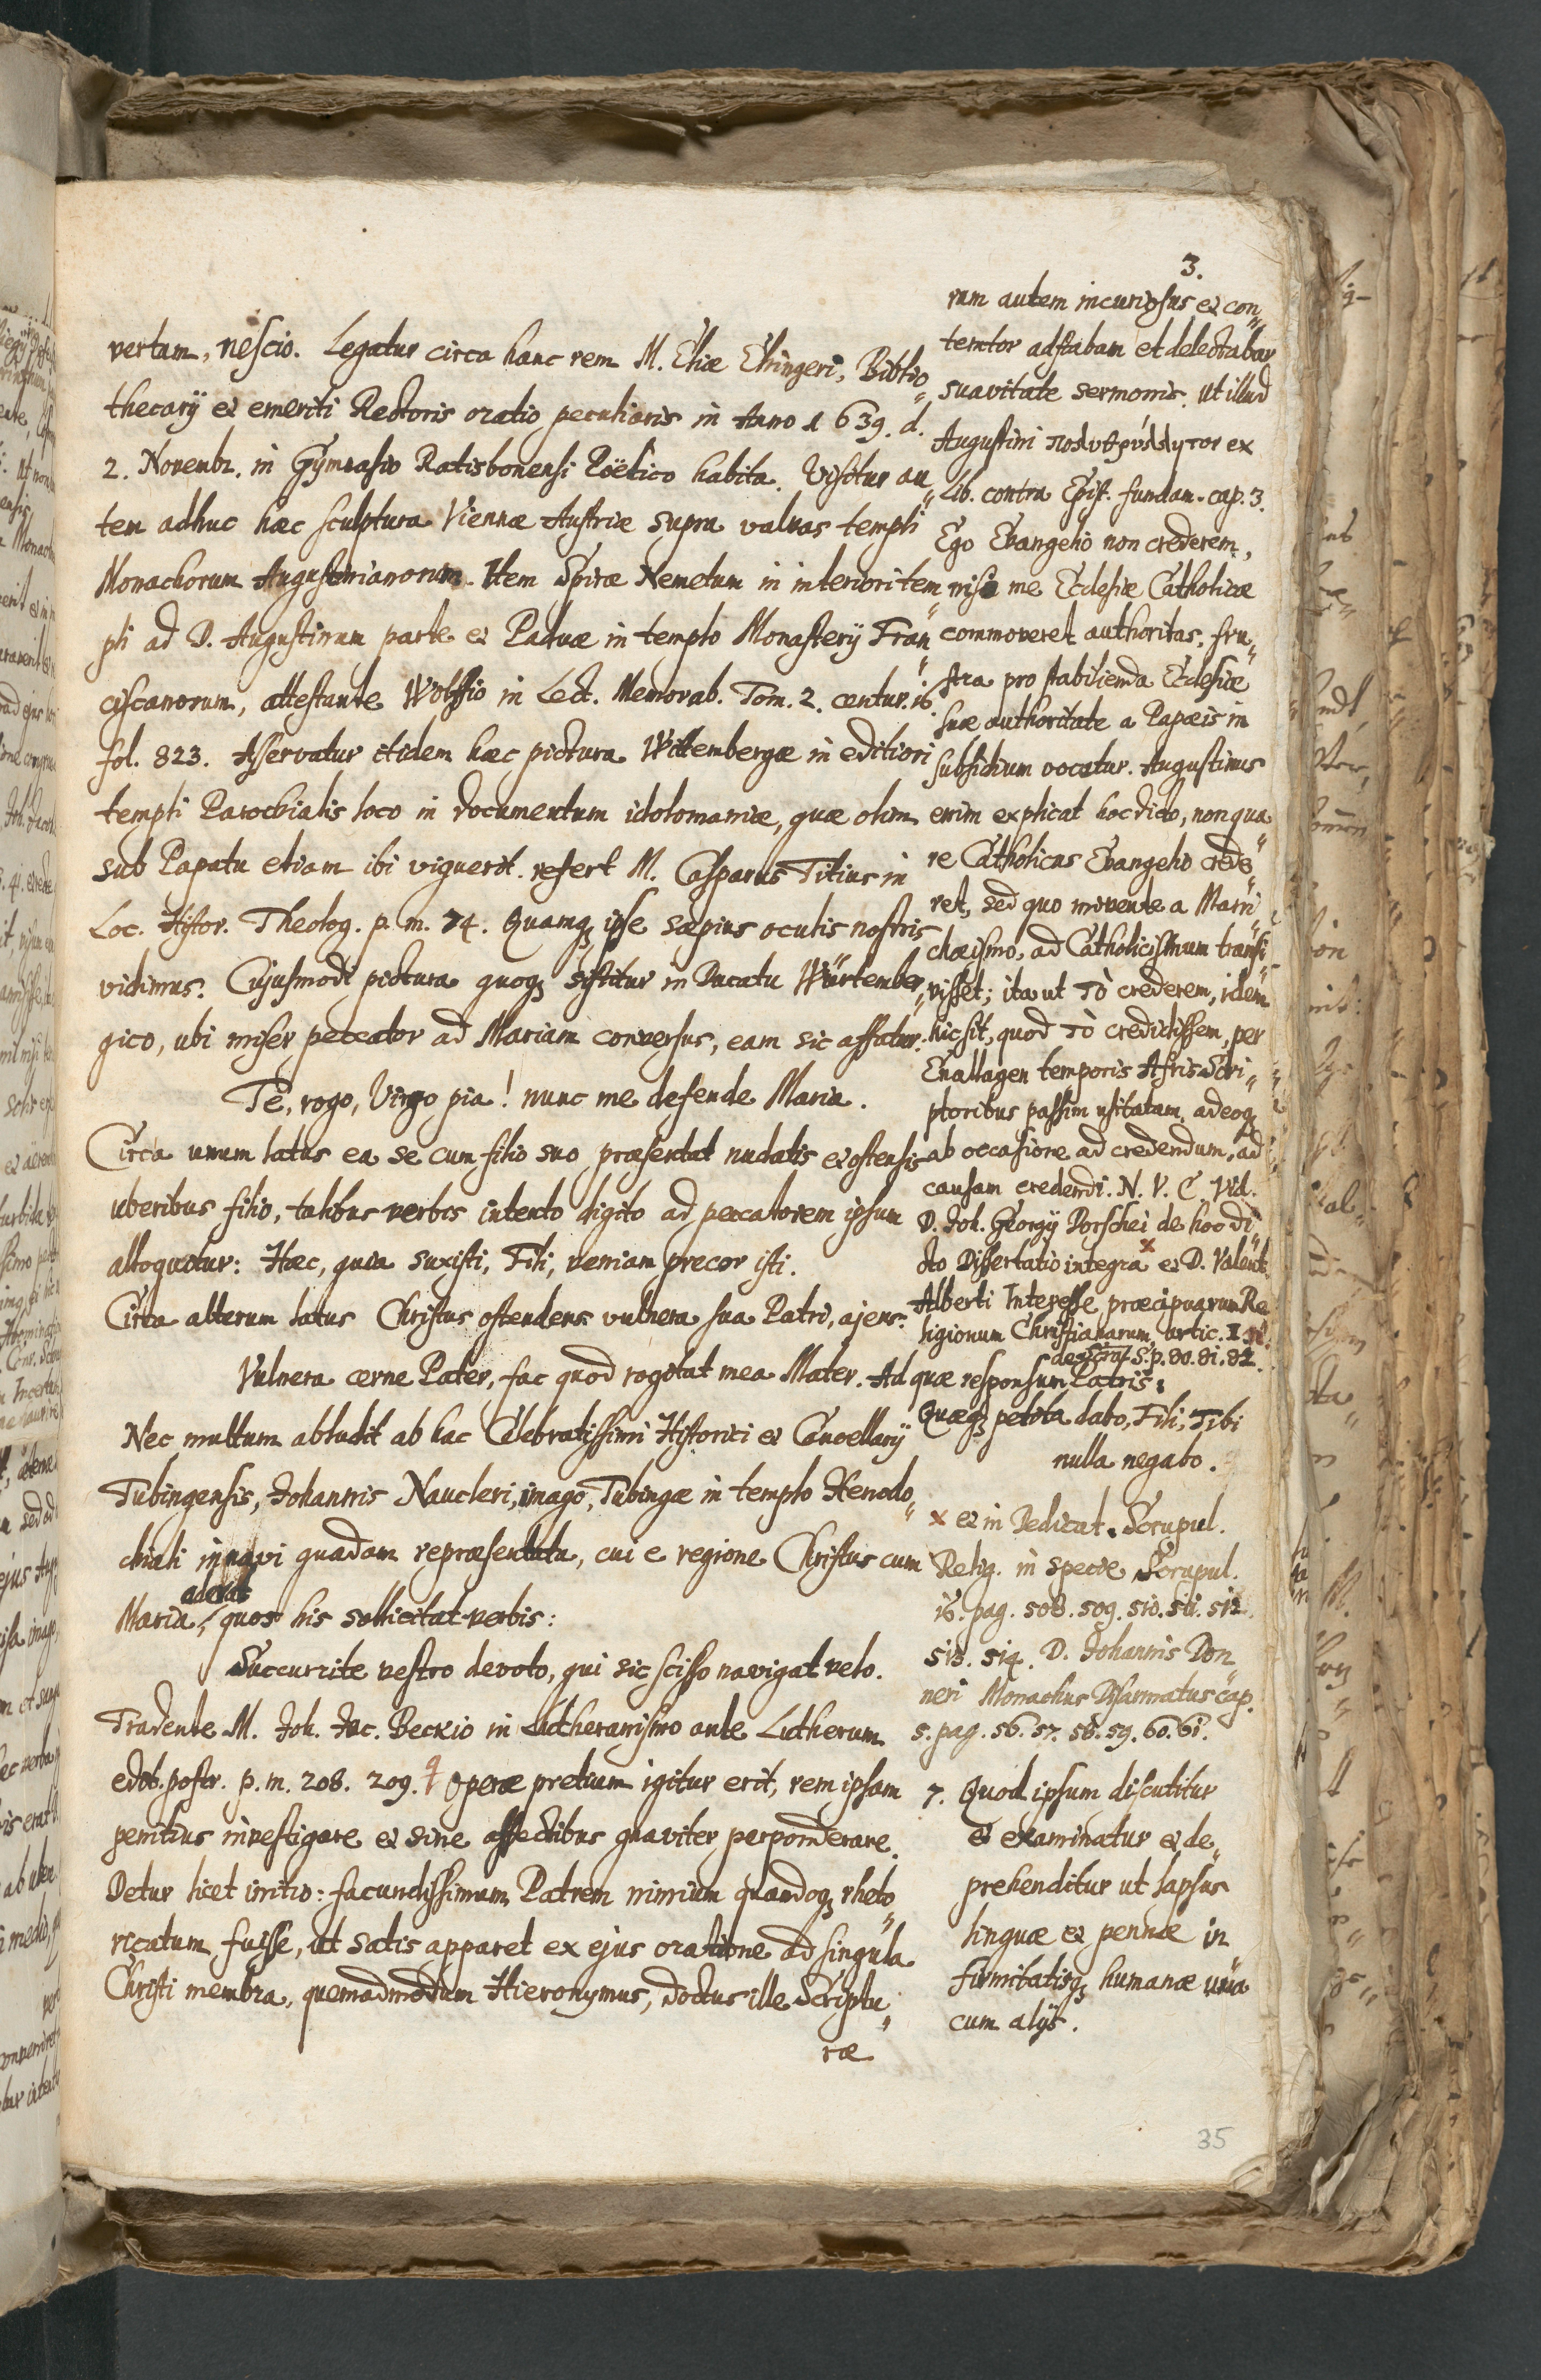 3.
vertam, nescio. Legatur circa hanc rem M. Eliæ Ehingeri, Biblio„
thecarÿ et emeriti Rectoris oratio peculiaris in Anno 1639. d.
2. Novembr. in Gÿmnasio Ratisbonensi Pöëtico habita. Visitur au„
tem adhuc hæc sculptura Viennæ Austriæ supra valvas templi
Monachorum Augustinianorum. Item Spiræ Nemetum in interiori tem„
pli ad D. Augustinum parte et Paduæ in templo Monasterÿ Fran„
ciscanorum, attestante Wolffio in Lect. Memorab. Tom. 2. centur. 16.
fol. 823. Asservatur itidem hæc pictura Wittembergæ in editiori
templi Parochialis loco in documentum idolomaniæ, quæ olim
sub Papatu etiam ibi viguerit. refert M. Casparus Titius in
Loc. Histor. Theolog. p. m. 74. Quamq; ipse sæpius oculis nostris
vidimus. Cujusmodi pictura quoq; sistitur in Ducatu Würtember„
gico, ubi miser peccator ad Mariam conversus, eam sic affatur:
Te, rogo, Virgo pia! nunc me defende Maria.
Circa unum latus ea se cum filio suo præsentat nudatis et ostensis
uberibus filio, talibus verbis intento digito ad peccatorem ipsum
alloquitur: Hæc, quia suxisti, Fili, veniam precor isti.
Circa alterum latus Christus ostendens vulnera sua Patri, ajens:
Vulnera cerne Pater, fac quod rogitat mea Mater. Ad quæ responsum Patris:
Nec multum abludit ab hac Celebratissimi Historici et Cancellarÿ
Tubingensis, Johannis Naucleri, imago, Tubingæ in templo Xenodo„
chiali in navi quadam repræsentata, cui e regione Christus cum
aderat
Maria, quos his sollicitat verbis:
Succurrite vestro devoto, qui sic scisso navigat velo.
Tradente M. Joh. Jac. Beckio in Lutheranismo ante Lutherum
edit. postr. p. m. 208. 209. Operæ pretium igitur erit, rem ipsam
penitius investigare et sine affectibus graviter perponderare.
Detur licet initio: facundissimum Patrem nimium quandoq; rheto„
ricatum fuisse, ut satis apparet ex ejus oratione ad singula
Christi membra, quemadmodum Hieronymus, doctus ille Scriptu„
ræ
rum autem incuriosus et con„
temtor adstabam et delectabar
suavitate sermonis. Ut illud
Augustini πολυθρύλλητον ex
Lib. contra Epist. fundam. cap. 3.
Ego Evangelio non crederem,
nisi me Ecclesiæ Catholicæ
commoveret authoritas, fru„
stra pro stabilienda Ecclesiæ
suæ authoritate a Papæis in
subsidium vocatur. Augustinus
enim explicat hoc dicto, non qua„
re Catholicus Evangelio crede„
ret, sed quo movente a Mani„
chæismo, ad Catholicismum transi„
visset; ita ut τὸ crederem, idem
hic sit, quod τὸ credidissem, per
Enallagen temporis Afris Scri„
ptoribus passim usitatam, adeoq;
ab occasione ad credendum, ad
causam credendi. N. V. C. Vid.
D. Joh. Georgÿ Dorschei de hoc di„
cto Dissertatio integra × et D. Valent.
Alberti Interesse præcipuarum Re„
ligionum Christianarum, artic. I
de Script. S. p. 80. 81. 82.
Quæq; petita dabo, Fili, Tibi
nulla negabo.
× et in Dedicat. Scrupul.
Relig. in specie Scrupul.
16. pag. 508. 509. 510. 511. 512.
513. 514. D. Johannis Don
neri Monachus Disarmatus cap.
5. pag. 56. 57. 58. 59. 60. 61.
7. Quod ipsum discutitur
et examinatur et de„
prehenditur ut lapsus
linguæ et pennæ in
firmitatisq; humanæ una
cum alÿs.
35